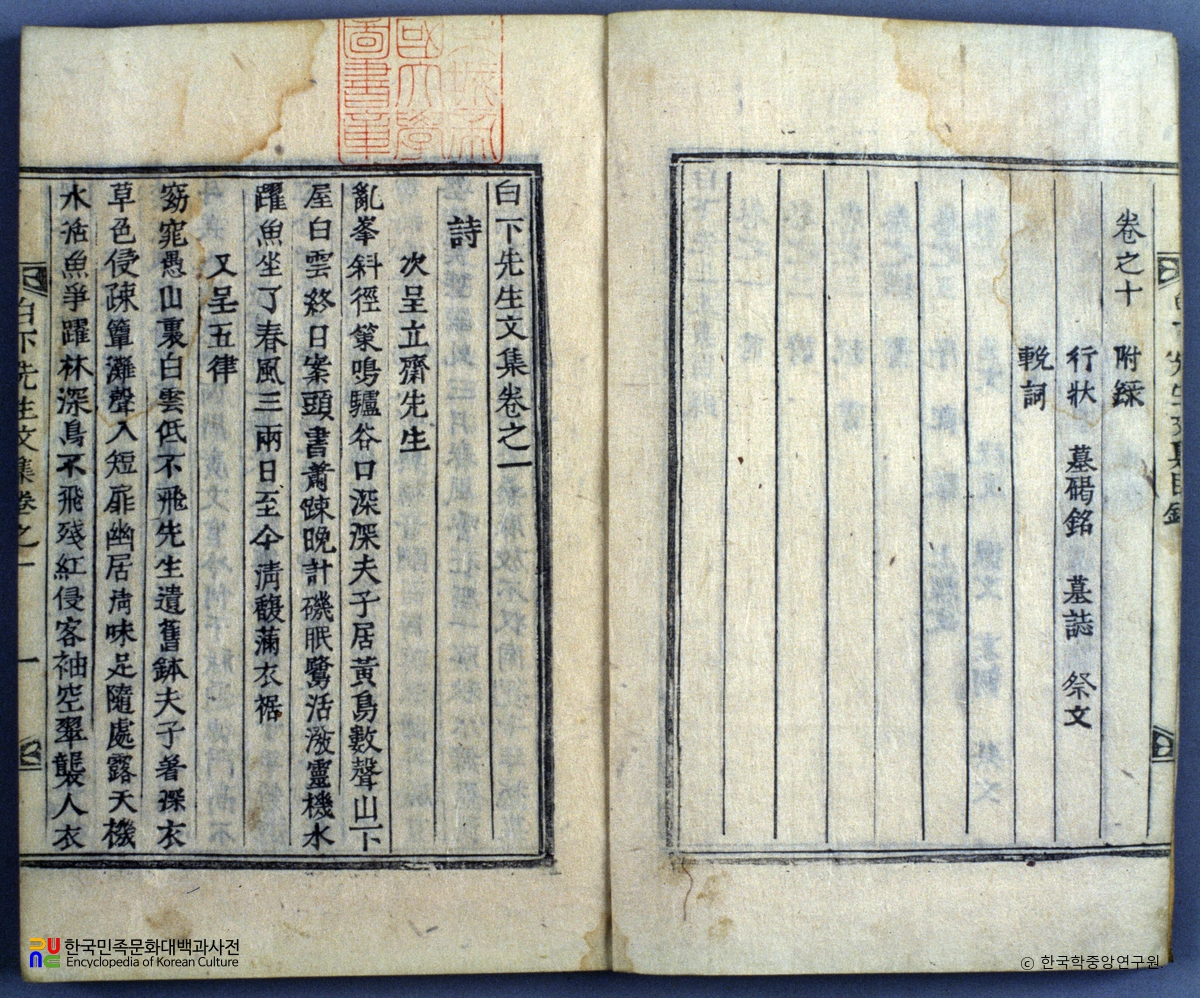 卷之十
附錄
行狀 墓碣銘 墓誌 祭文
輓詞
白下先生文集卷之一
詩
次呈立齋先生
亂峯斜徑策鳴驢谷口深深夫子居黃鳥數聲山下
屋白雲終日案頭書蕭踈晩計磯眠鷺活潑靈機水
躍魚坐了春風三兩日至今淸馥滿衣裾
又呈五律
窈窕愚山裏白雲低不飛先生遺舊鉢夫子着深衣
草色侵疎簟灘聲入短扉幽居淸味足隨處露天機
水活魚爭躍林深鳥不飛殘紅侵客袖空翠襲人衣
白下先生文集卷之一 一
圖書章
國大學
한국민족문화대백과사전
Encyclopedia of Korean Culture
© 한국학중앙연구원